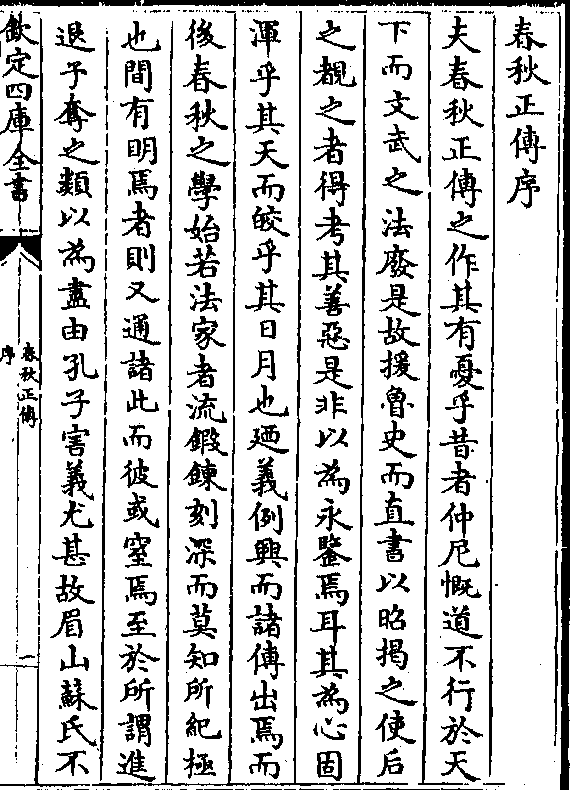 春秋正傳序
夫春秋正傳之作其有憂乎昔者仲尼慨道不行於天
下而文武之法廢是故援魯史而直書以昭揭之使后
之覩之者得考其善惡是非以為永鑒焉耳其為心固
渾乎其天而皎乎其日月也廼義例興而諸傳出焉而
後春秋之學始若法家者流鍜鍊刻深而莫知所紀極
也間有明焉者則又通諸此而彼或窒焉至於所謂進
退予奪之類以為盡由孔子害義尤甚故眉山蘇氏不
欽定四庫全書
春秋正傳
序
一